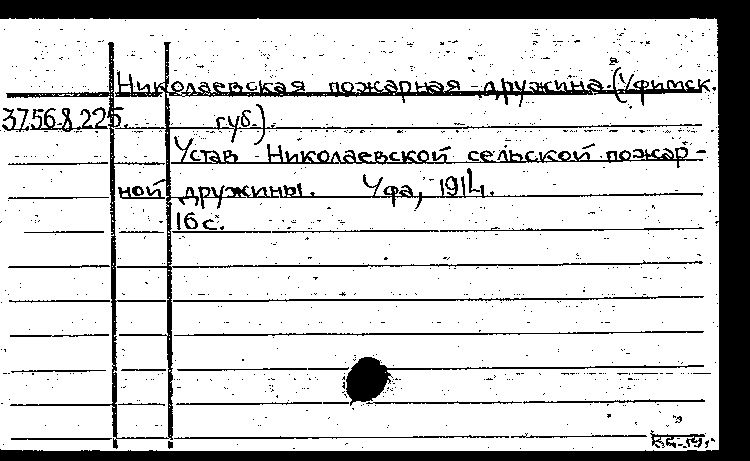 Николаевская пожарная дружина. (Уфимск.
37.56.8.225. губ.).
Устав Николаевской сельской пожар-
ной дружины. Уфа, 1914.
16 с.